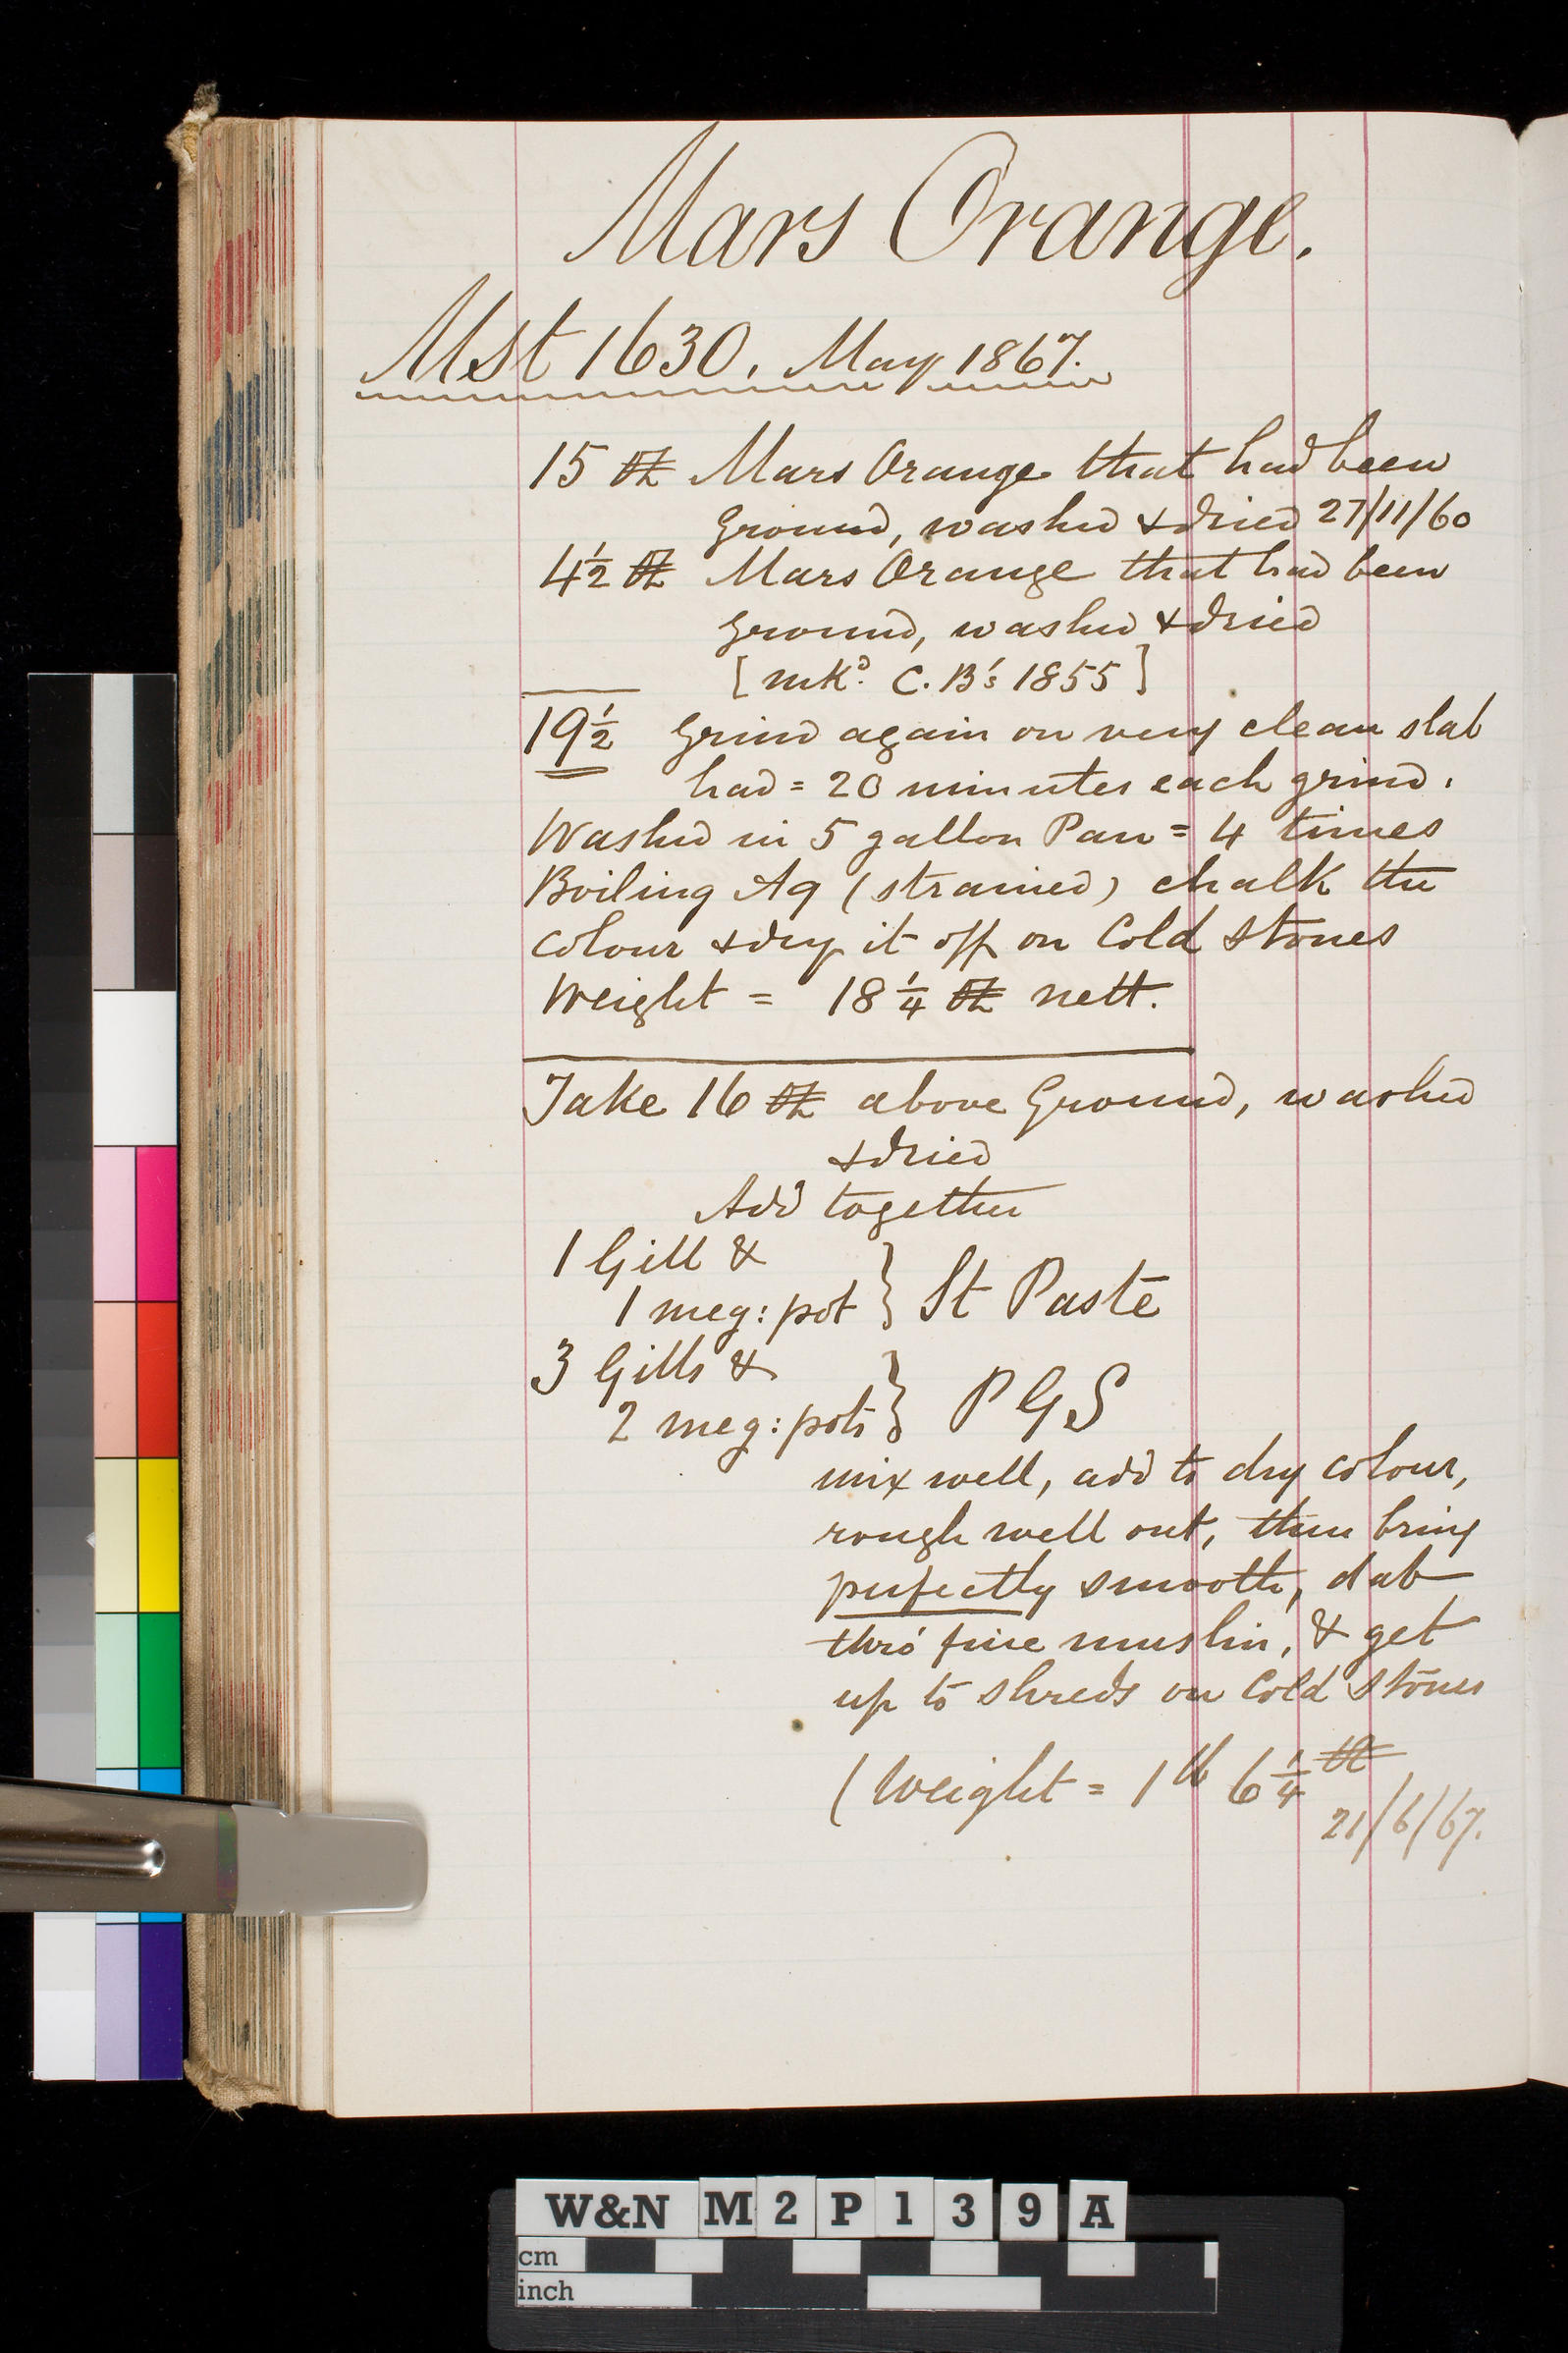 Mars Orange.
Mst 1630. May 1867.
15 ℥ Mars Orange that had been
Ground, washed & dried 27/11/60
4½ ℥ Mars Orange that had been
ground, washed & dried
[mkd. C. B's 1855]
19½ Grind again on very clean slab
had = 20 minutes each grind.
Washed in 5 gallon Pan = 4 times
Boiling Aq (strained) chalk the
colour & dry it off on Cold Stones
Weight = 18¼ ℥ nett.
Take 16 ℥ above Ground, washed
& dried
Add together
1 Gill &
1 meg: pot } St Paste
3 Gills &
2 meg: pots } P G S
mix well, add to dry colour,
rough well out, then bring
perfectly smooth, dab
thro' fine muslin, & get
up to shreds on Cold Stones
(Weight = 1 lb 6¼ ℥
21/6/67.
W&N M2P139A
cm
inch